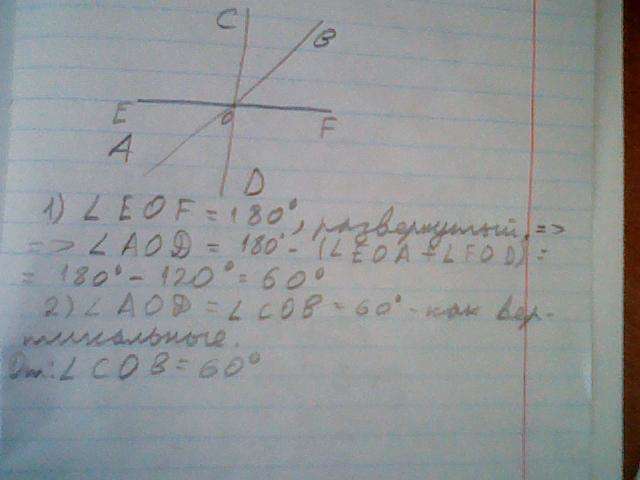 C
B
E
O
F
A
D
1) ∠EOF = 180°, развернутый, =>
=> ∠AOD = 180° - (∠EOA + ∠FOD) =
= 180° - 120° = 60°
2) ∠AOD = ∠COB = 60° - как вер-
тикальные.
От: ∠COB = 60°